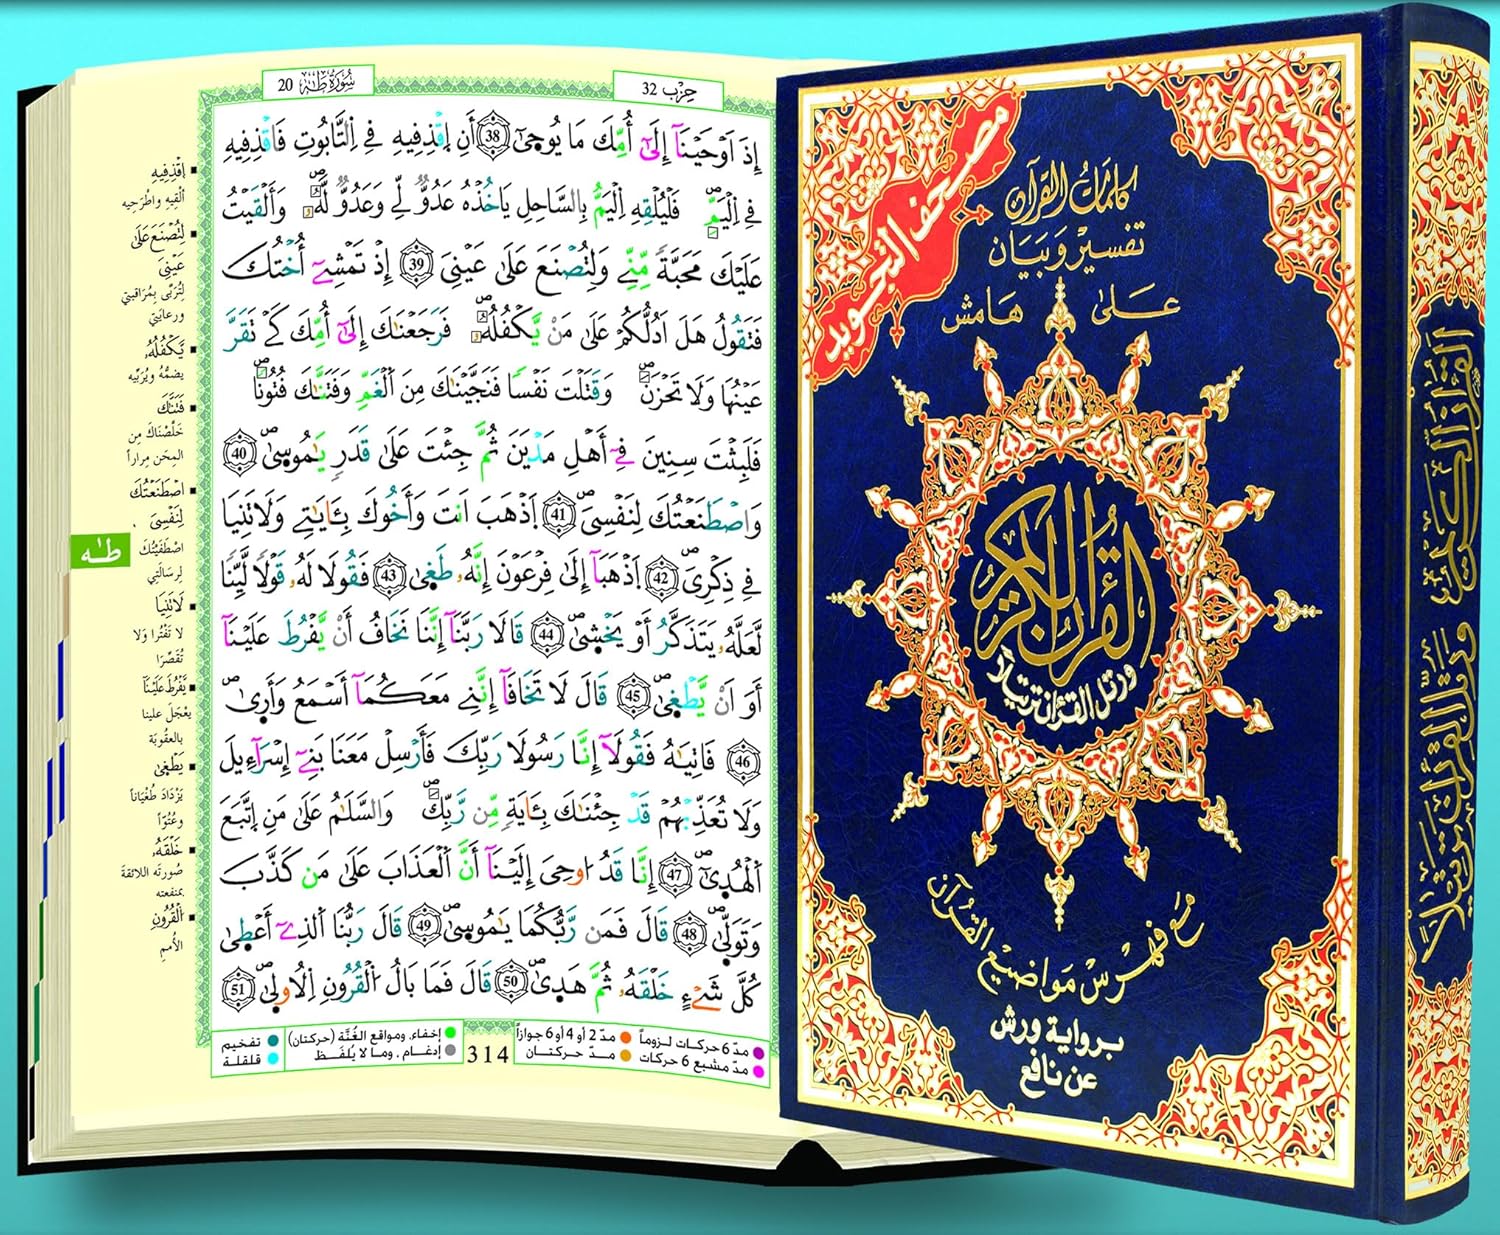 سُورَةُ طَهَ 20
حِزْب 32
إِذَ اَوْحَيْنَآ إِلَىٰٓ أُمِّكَ مَا يُوحَىٰٓ 38 أَنِ اِقْذِفِيهِ فِے اِلتَّابُوتِ فَاقْذِفِيهِ
فِے اِلْيَمِّ فَلْيُلْقِهِ اِلْيَمُّ بِالسَّاحِلِ يَاخُذْهُ عَدُوٌّ لِّے وَعَدُوٌّ لَّهُۥ وَأَلْقَيْتُ
عَلَيْكَ مَحَبَّةً مِّنِّے وَلِتُصْنَعَ عَلَىٰ عَيْنِيَ 39 إِذْ تَمْشِےٓ أُخْتُكَ
فَتَقُولُ هَلَ اَدُلُّكُمْ عَلَىٰ مَنْ يَّكْفُلُهُۥ فَرَجَعْنَاكَ إِلَىٰٓ أُمِّكَ كَےْ تَقَرَّ
عَيْنُهَا وَلَا تَحْزَنَ وَقَتَلْتَ نَفْسًا فَنَجَّيْنَاكَ مِنَ اَلْغَمِّ وَفَتَنَّاكَ فُتُونًا
فَلَبِثْتَ سِنِينَ فِےٓ أَهْلِ مَدْيَنَ ثُمَّ جِئْتَ عَلَىٰ قَدَرٍ يَٰمُوسَىٰ 40
وَاصْطَنَعْتُكَ لِنَفْسِيَ 41 اَذْهَبَ اَنتَ وَأَخُوكَ بِـَٔايَٰتِے وَلَا تَنِيَا
فِے ذِكْرِيَ 42 اَذْهَبَآ إِلَىٰ فِرْعَوْنَ إِنَّهُۥ طَغَىٰ 43 فَقُولَا لَهُۥ قَوْلًا لَّيِّنًا
لَّعَلَّهُۥ يَتَذَكَّرُ أَوْ يَخْشَىٰ 44 قَالَا رَبَّنَآ إِنَّنَا نَخَافُ أَنْ يَّفْرُطَ عَلَيْنَآ
أَوَ اَنْ يَّطْغَىٰ 45 قَالَ لَا تَخَافَآ إِنَّنِے مَعَكُمَآ أَسْمَعُ وَأَرَىٰ
46 فَاتِيَٰهُ فَقُولَآ إِنَّا رَسُولَا رَبِّكَ فَأَرْسِلْ مَعَنَا بَنِےٓ إِسْرَآءِيلَ
وَلَا تُعَذِّبْهُمْ قَدْ جِئْنَاكَ بِـَٔايَةٍ مِّن رَّبِّكَ وَالسَّلَٰمُ عَلَىٰ مَنِ اِتَّبَعَ
اَلْهُدَىٰٓ 47 إِنَّا قَدُ اُوحِيَ إِلَيْنَآ أَنَّ اَلْعَذَابَ عَلَىٰ مَن كَذَّبَ
وَتَوَلَّىٰ 48 قَالَ فَمَن رَّبُّكُمَا يَٰمُوسَىٰ 49 قَالَ رَبُّنَا اَلذِےٓ أَعْطَىٰ
كُلَّ شَےْءٍ خَلْقَهُۥ ثُمَّ هَدَىٰ 50 قَالَ فَمَا بَالُ اُلْقُرُونِ اِلُاولَىٰ 51
اِقْذِفِيهِ
أَلْقِيهِ واطْرَحِيه
لِتُصْنَعَ عَلَىٰ
عَيْنِيَ
لِتُرَبَّى بِمُرَاقَبتِي
ورعايَتِي
يَّكْفُلُهُۥ
يضمُّهُ ويُرَبِّيه
فَتَنَّاكَ
خَلَّصْنَاكَ مِن
المِحَن مِراراً
اصْطَنَعْتُكَ
لِنَفْسِيَ
اصْطَفَيْتُكَ
لرسَالَتِي
لَا تَنِيَا
لا تَفْتُرا وَلا
تُقَصِّرَا
يَّفْرُطَ عَلَيْنَآ
يعْجَلَ علينا
بالعقُوبَة
يَطْغَىٰ
يَزْدَادَ طُغْيَاناً
وعُتُوّاً
خَلْقَهُۥ
صُورتَه اللائقةَ
بمنفعته
اَلْقُرُونِ
الأُمم
طَهَ
مدّ 6 حركات لزوماً
مدّ 2 أو 4 أو 6 جوازاً
مدّ مشبع 6 حركات
مدّ حركتان
314
إخفاء، ومواقع الغُنَّة (حركتان)
تفخيم
إدغام ، وما لا يُلفَظ
قلقلة
مصحف التجويد
كلمات القرآن
تفسير وبيان
على هامش
القرآن الكريم
ورتل القرآن ترتيلاً
مع فهرس مواضيع القرآن
برواية ورش
عن نافع
القرآن الكريم ورتل القرآن ترتيلاً